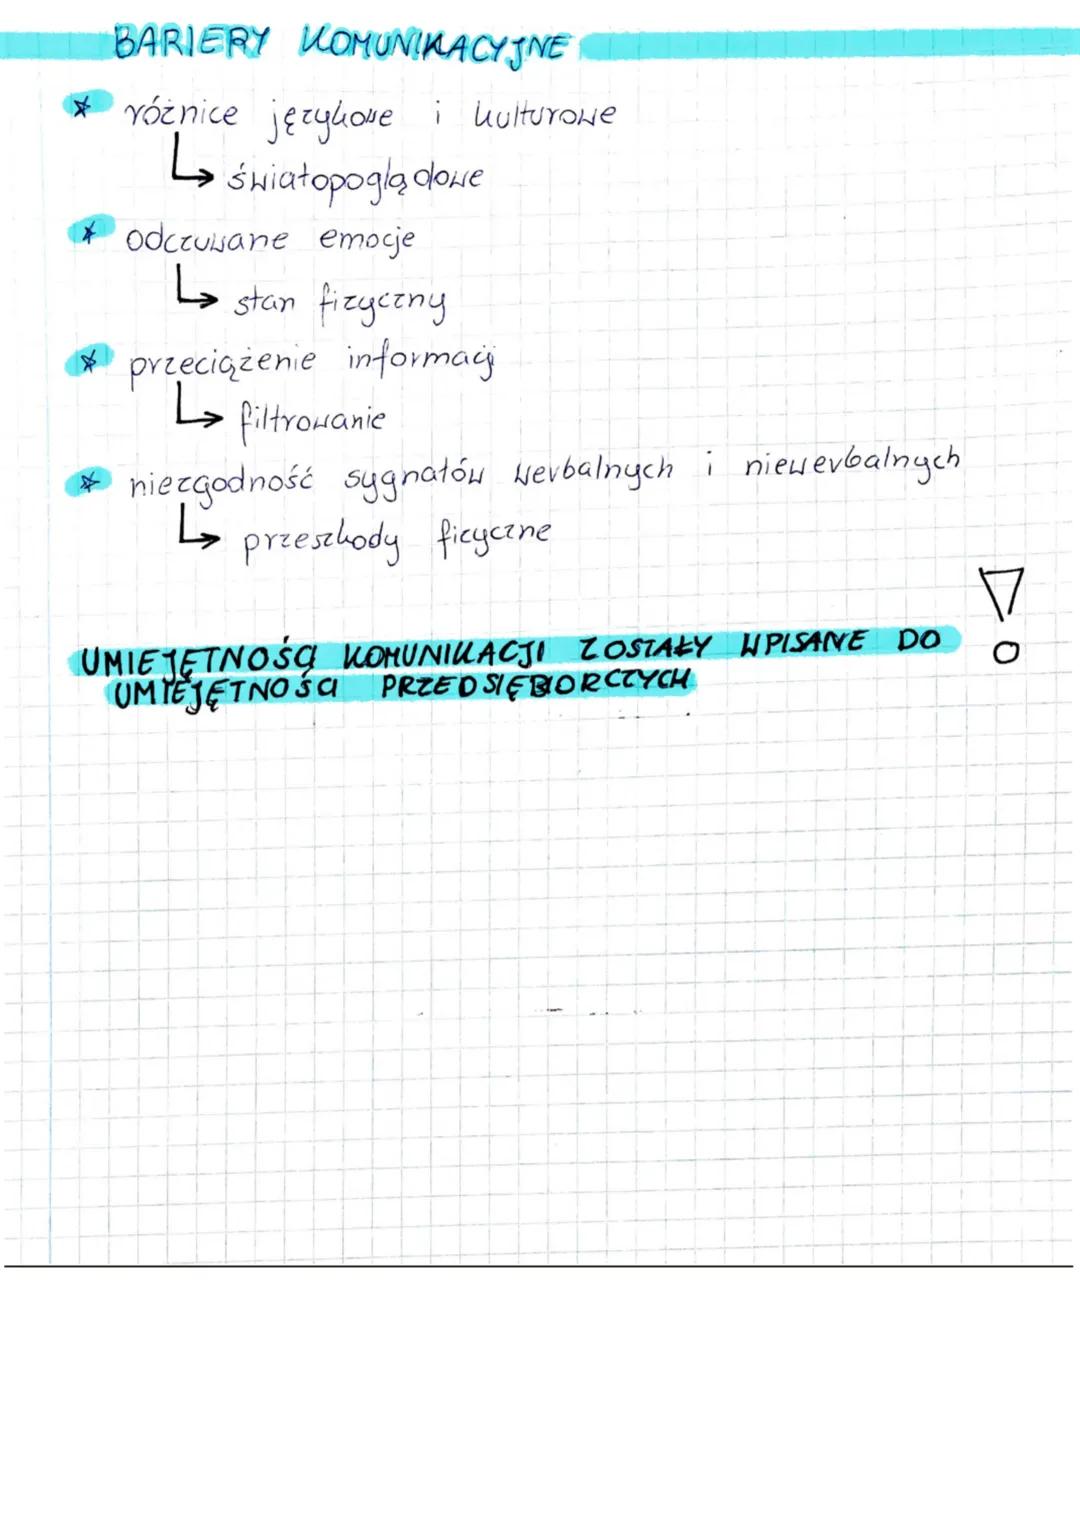 BARIERY KOMUNIKACYJNE
☆ różnice językowe i kulturowe
↳ światopoglądowe
☆ odczuwane emocje
↳ stan fizyczny
☆ przeciążenie informacji
↳ filtrowanie
☆ niezgodność sygnałów werbalnych i niewerbalnych
↳ przeszkody fizyczne
UMIEJĘTNOŚCI KOMUNIKACJI ZOSTAŁY WPISANE DO !
UMIEJĘTNOŚCI PRZEDSIĘBIORCZYCH